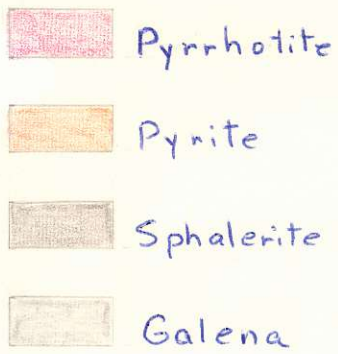 Pyrrhotite
Pyrite
Sphalerite
Galena